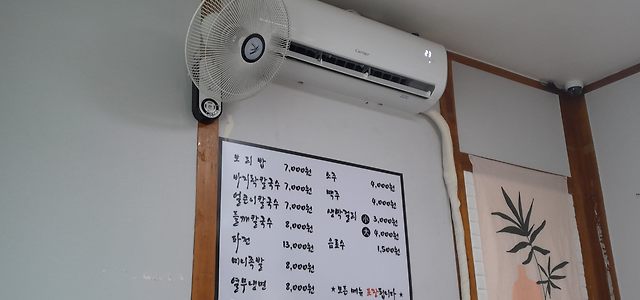 보리밥 7,000원
바지락칼국수 7,000원
얼큰이칼국수 7,000원
들깨칼국수 8,000원
파전 13,000원
미니족발 8,000원
열무냉면 8,000원
소주 4,000원
맥주 4,000원
생막걸리 小 3,000원
大 4,000원
음료수 1,500원
* 모든 메뉴 포장됩니다 *
Carrier
23